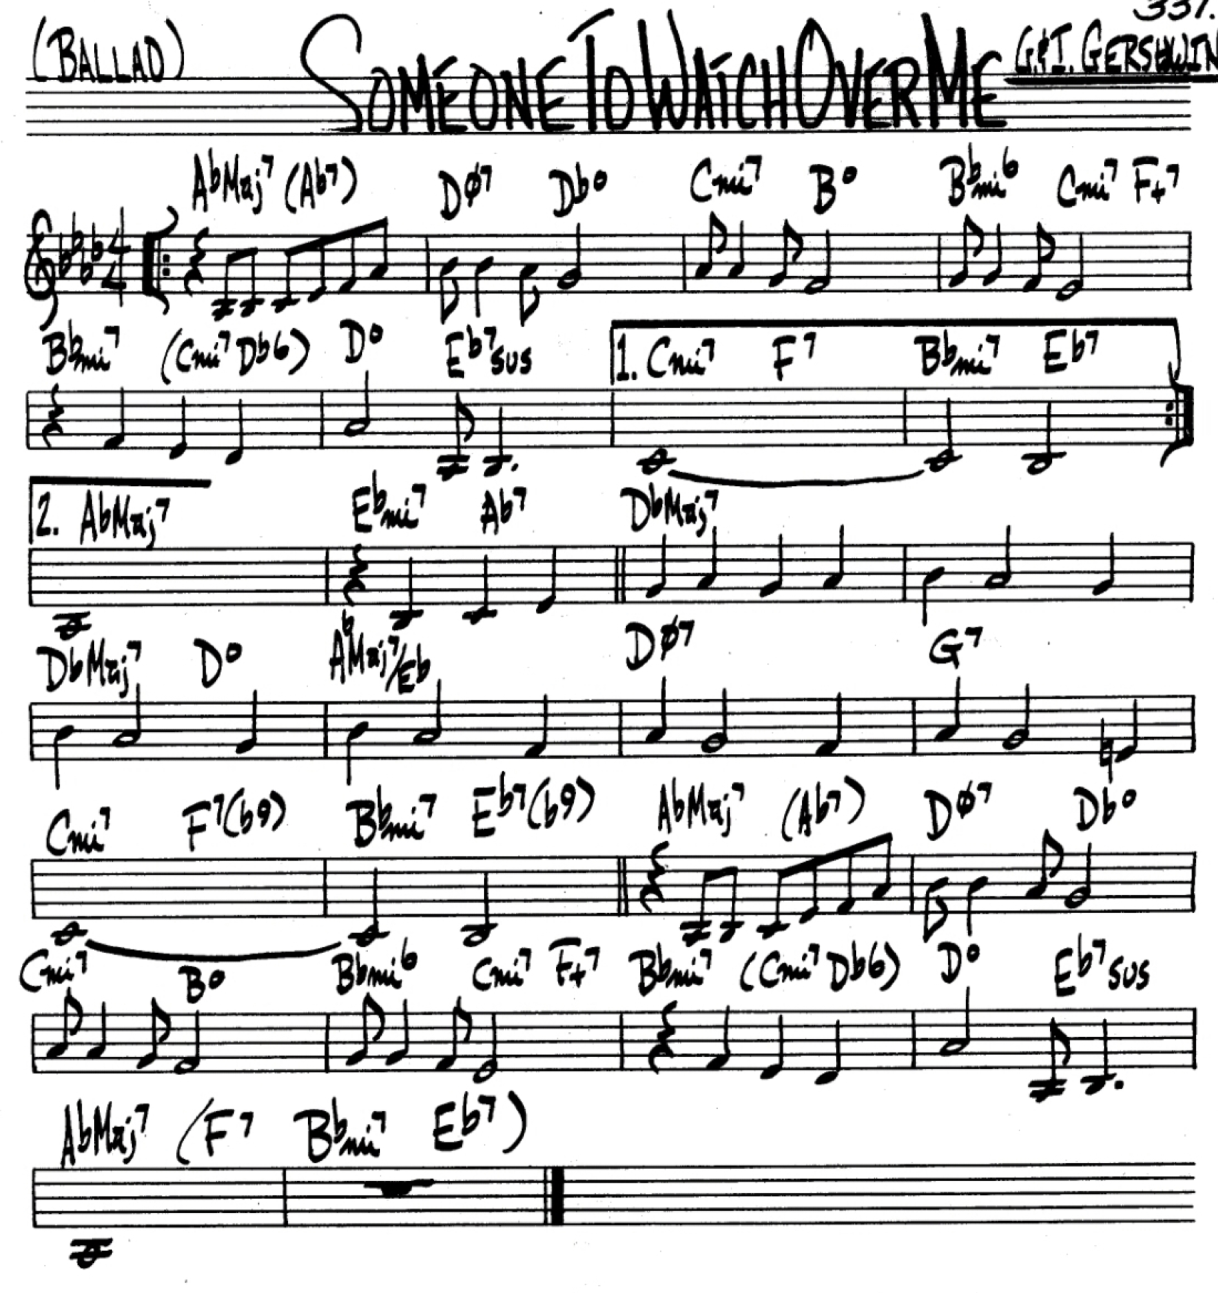 337.
(BALLAD) SOMEONE TO WATCH OVER ME G.&I. GERSHWIN
AbMaj7 (Ab7) DØ7 Dbo Cmi7 Bo Bbmi6 Cmi7 F+7
4/4
Bbmi7 (Cmi7 Db6) Do Eb7sus 1. Cmi7 F7 Bbmi7 Eb7
2. AbMaj7 Ebmi7 Ab7 DbMaj7
DbMaj7 Do AbMaj7/Eb DØ7 G7
Cmi7 F7(b9) Bbmi7 Eb7(b9) AbMaj7 (Ab7) DØ7 Dbo
Cmi7 Bo Bbmi6 Cmi7 F+7 Bbmi7 (Cmi7 Db6) Do Eb7sus
AbMaj7 (F7 Bbmi7 Eb7)